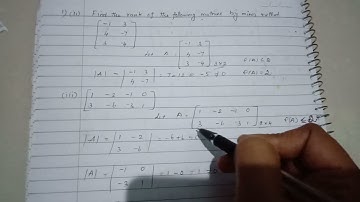 (ii) Find the rank of the following matrices by minor method
[ -1 3
4 -7
3 -4 ]
Let A = [ -1 3
4 -7
3 -4 ] 3×2
|A| = | -1 3
4 -7 | = 7 - 12 = -5 ≠ 0
(iii) [ 1 -2 -1 0
3 -6 -3 1 ]
Let A = [ 1 -2 -1 0
3 -6 -3 1 ] 2×4
|A| = | 1 -2
3 -6 | = -6 + 6
|A| = | -1 0
-3 1 |